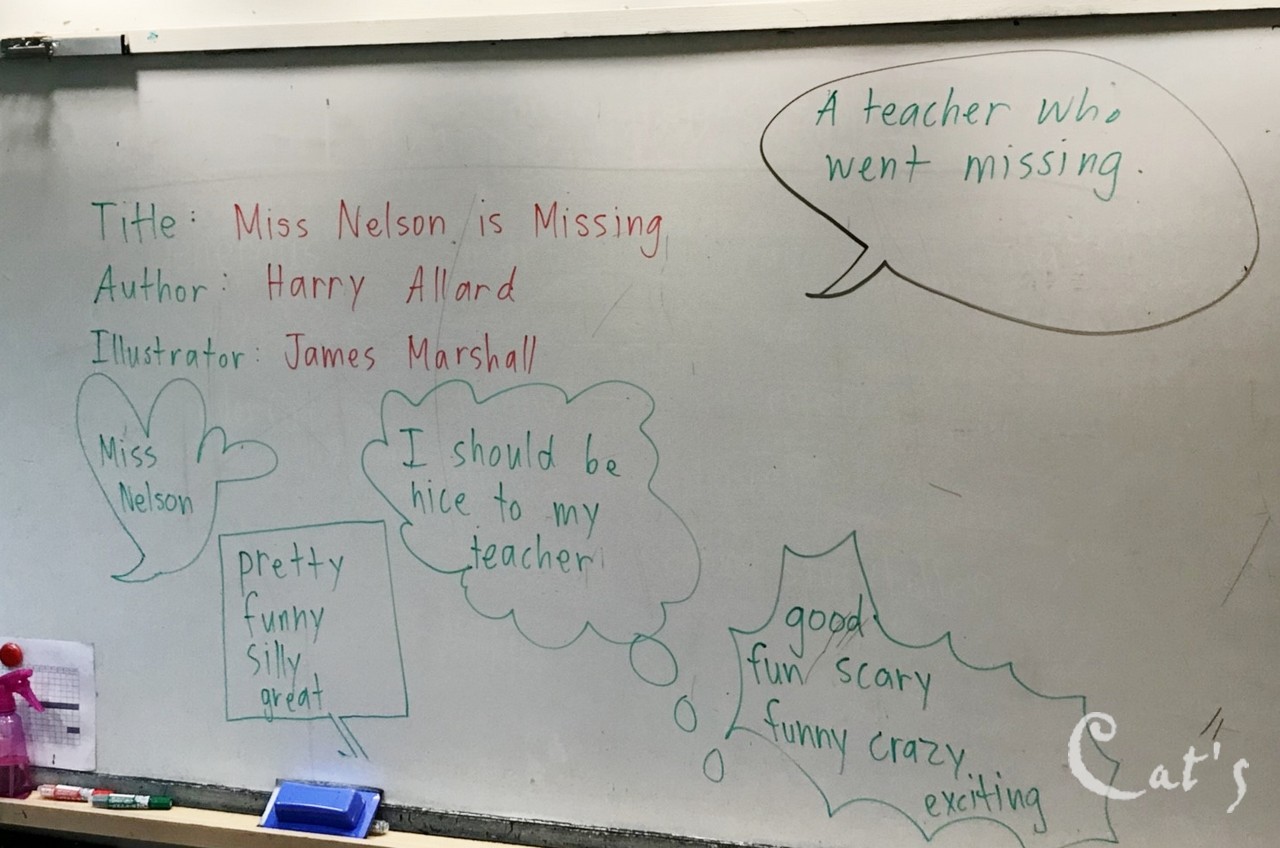 A teacher who
went missing.
Title: Miss Nelson is Missing
Author: Harry Allard
Illustrator: James Marshall
Miss
Nelson
I should be
nice to my
teacher.
pretty
funny
silly
great
good
fun scary
funny crazy
exciting
Cat's